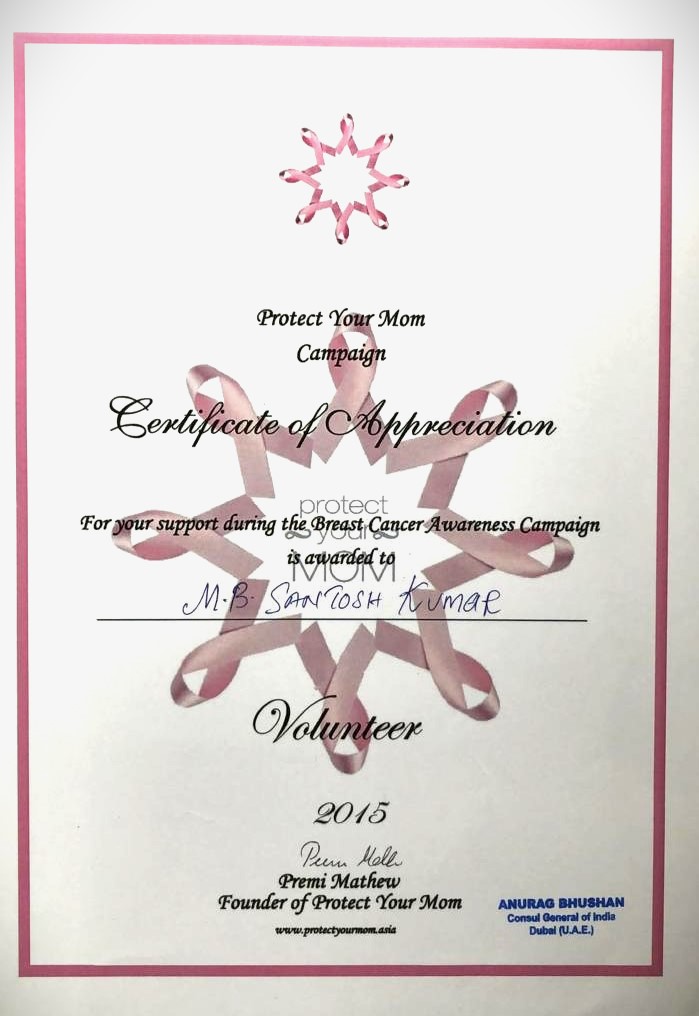 Protect Your Mom
Campaign
Certificate of Appreciation
protect
your
MOM
For your support during the Breast Cancer Awareness Campaign
is awarded to
M.B. SANTOSH KUMAR
Volunteer
2015
Premi Mathew
Founder of Protect Your Mom
www.protectyourmom.asia
ANURAG BHUSHAN
Consul General of India
Dubai (U.A.E.)